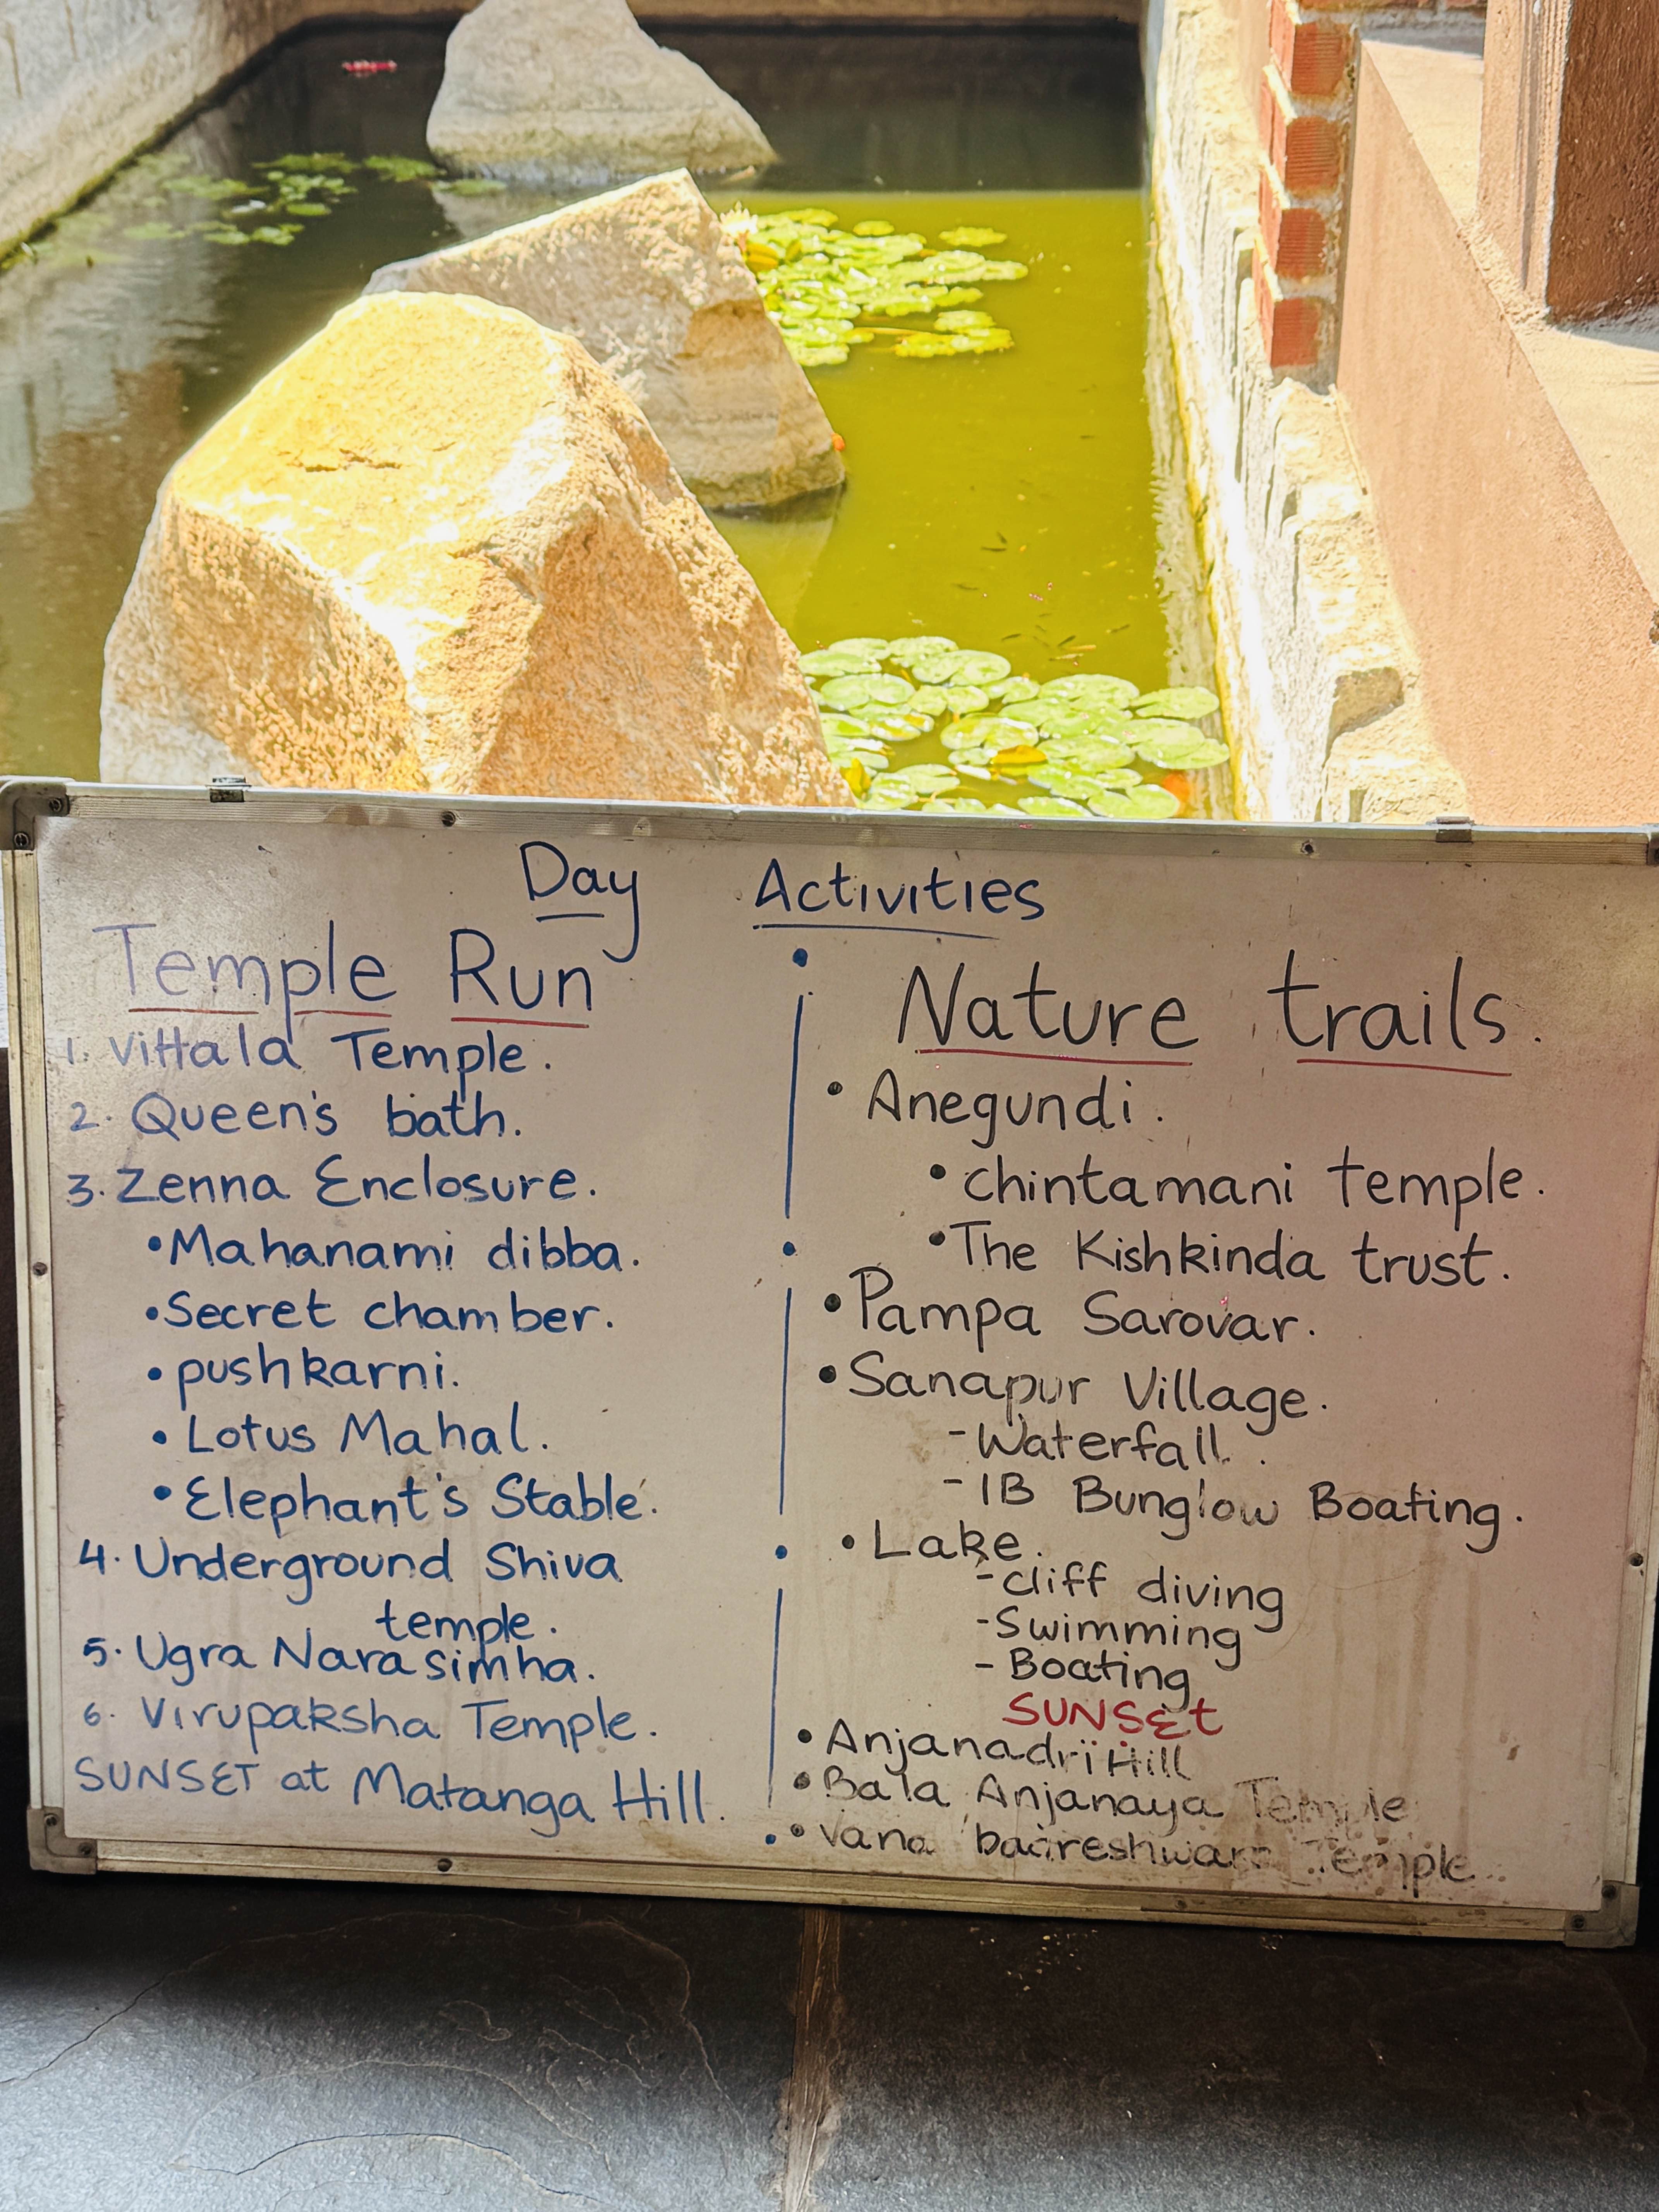 Day Activities
Temple Run
1. Vittala Temple.
2. Queen's bath.
3. Zenna Enclosure.
• Mahanami dibba.
• Secret chamber.
• pushkarni.
• Lotus Mahal.
• Elephant's Stable.
4. Underground Shiva
temple.
5. Ugra Narasimha.
6. Virupaksha Temple.
SUNSET at Matanga Hill.
Nature trails.
• Anegundi.
• chintamani temple.
• The Kishkinda trust.
• Pampa Sarovar.
• Sanapur Village.
- Waterfall.
- IB Bunglow Boating.
• Lake.
- cliff diving
- Swimming
- Boating
SUNSEt
• Anjanadri Hill
• Bala Anjanaya Temple
• Vana Temple